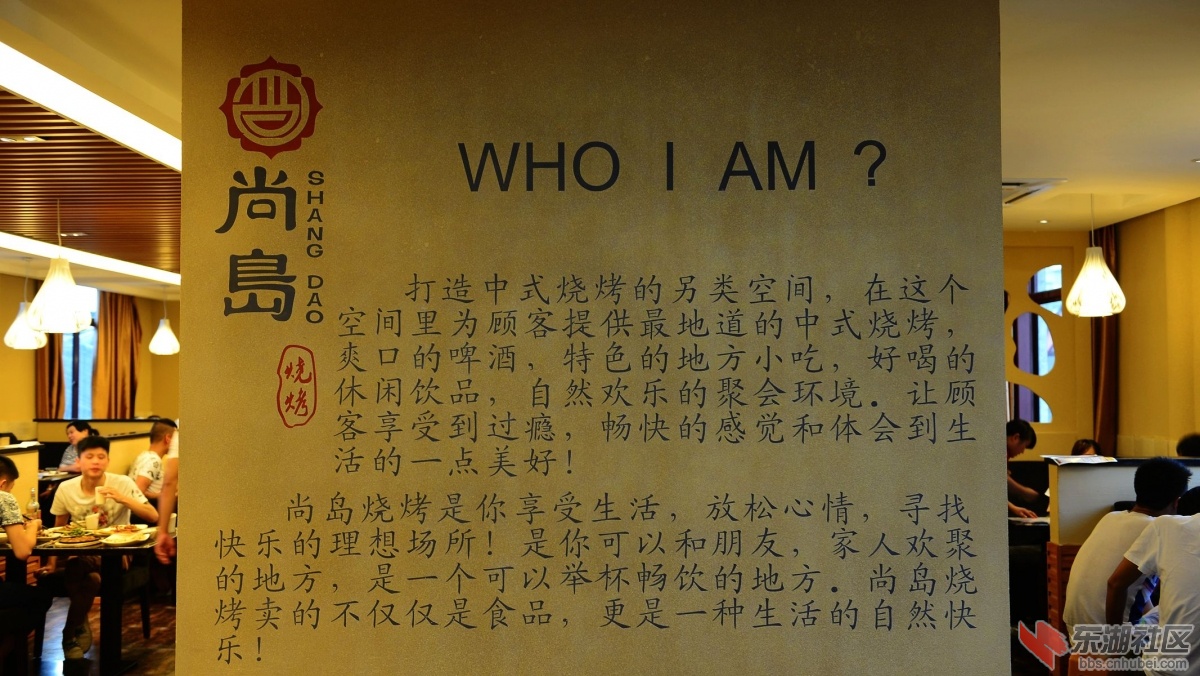 尚島
SHANG DAO
烧烤
WHO I AM ?
打造中式烧烤的另类空间，在这个
空间里为顾客提供最地道的中式烧烤，
爽口的啤酒，特色的地方小吃，好喝的
休闲饮品，自然欢乐的聚会环境。让顾
客享受到过瘾，畅快的感觉和体会到生
活的一点美好！
尚岛烧烤是你享受生活，放松心情，寻找
快乐的理想场所！是你可以和朋友，家人欢聚
的地方，是一个可以举杯畅饮的地方。尚岛烧
烤卖的不仅仅是食品，更是一种生活的自然快
乐！
东湖社区
bbs.cnhubei.com